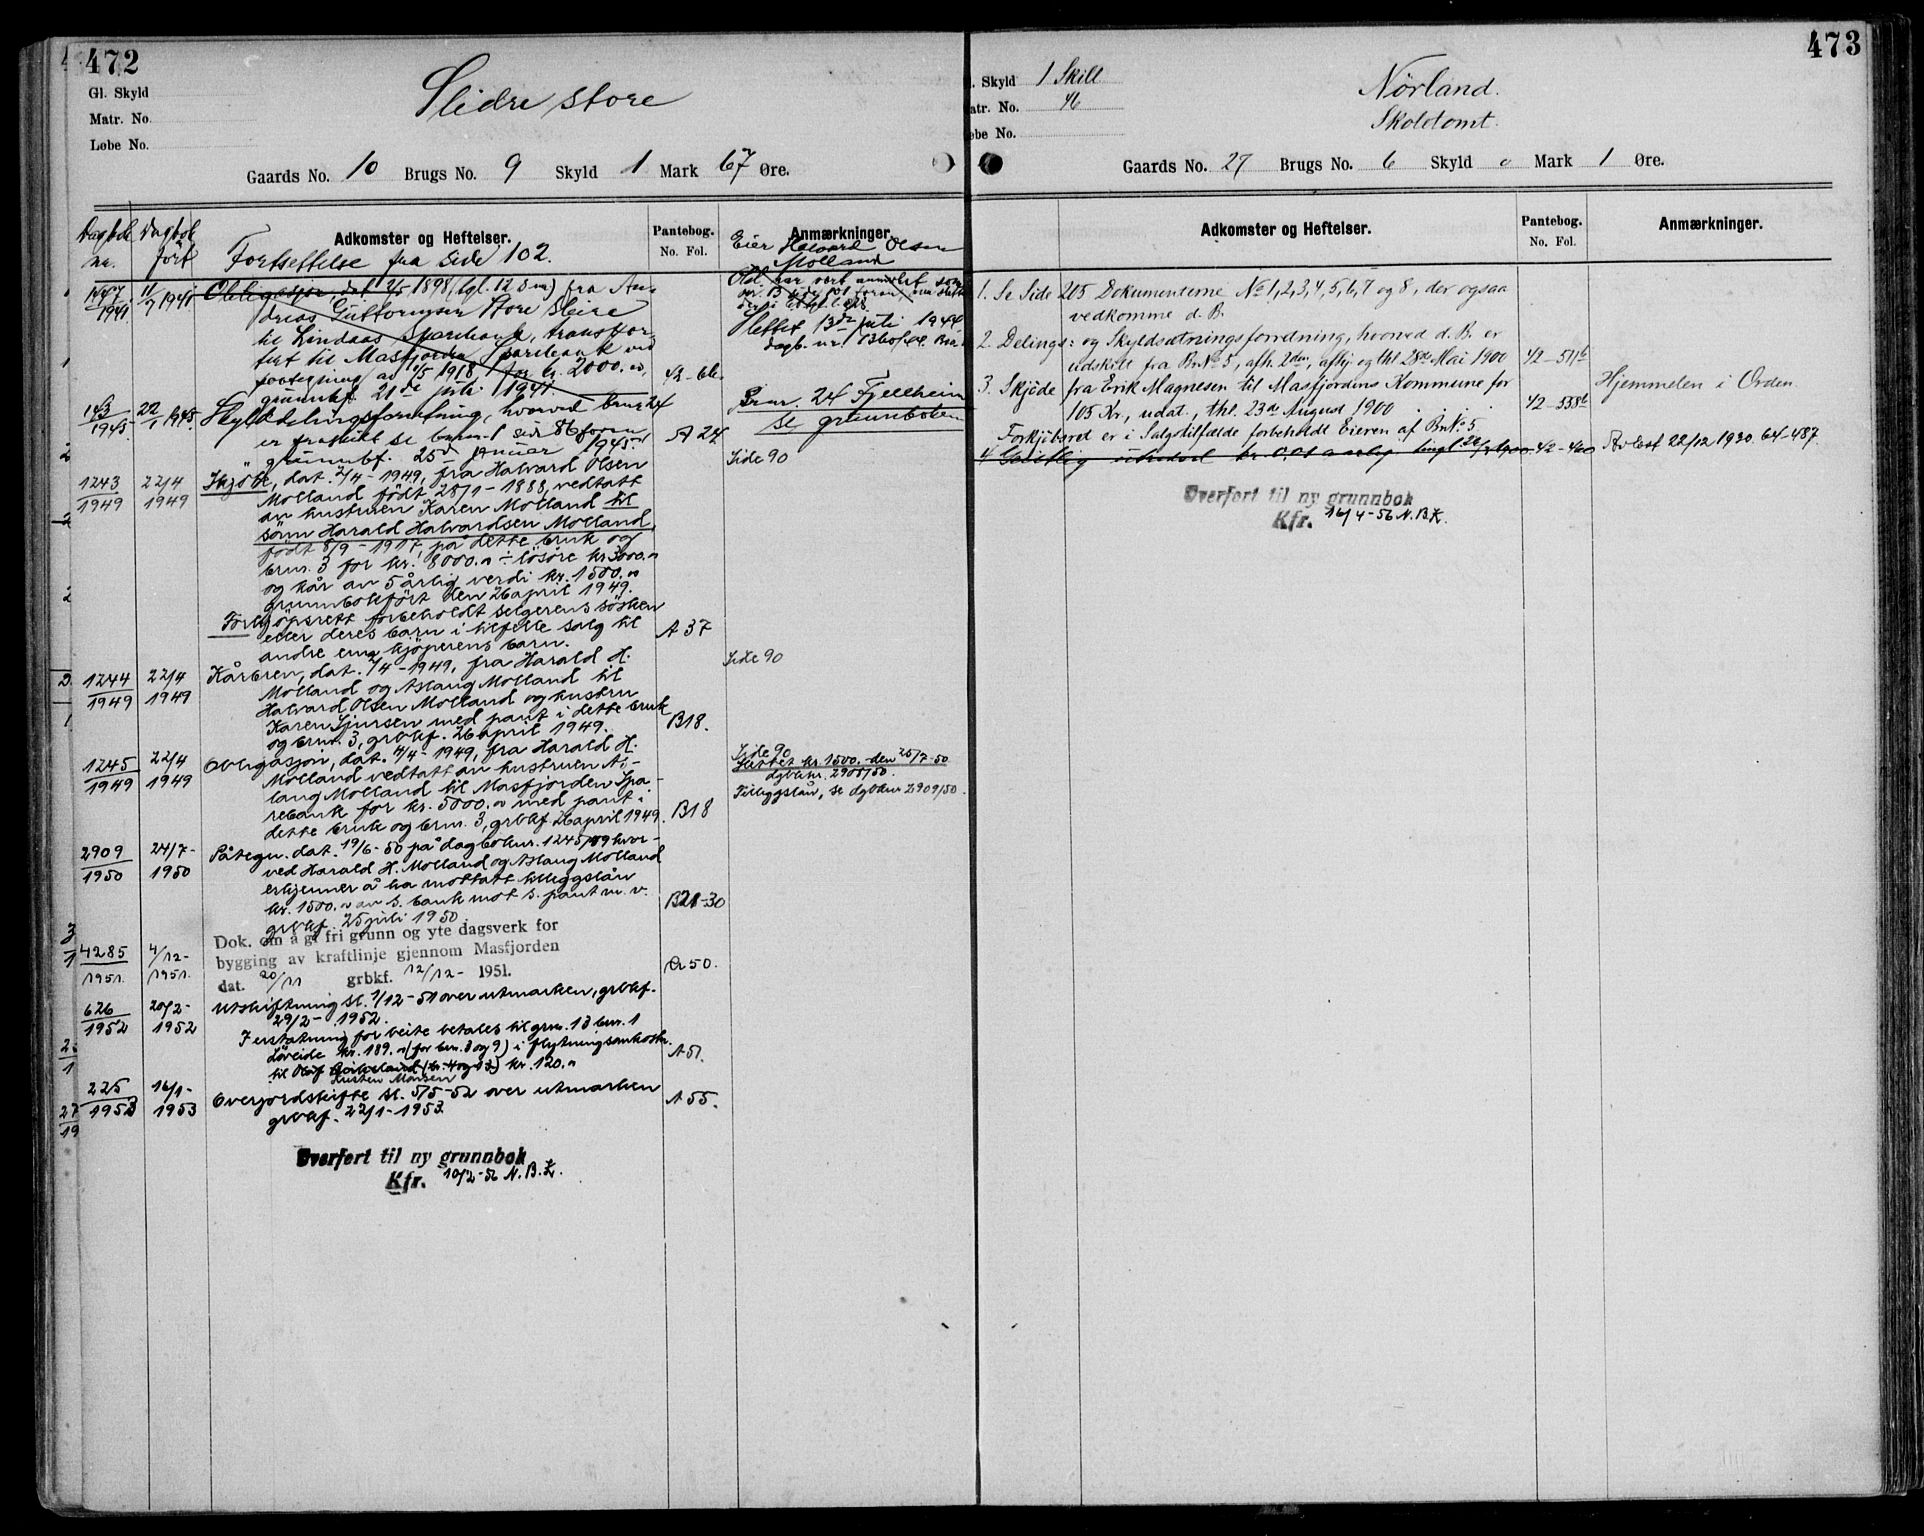 472
Gl. Skyld
Matr. No.
Løbe No.
Slidre store
Gaards No. 10 Brugs No. 9 Skyld 1 Mark 67 Øre.
Dagbok nr.
Dagbok ført
Adkomster og Heftelser.
Pantebog.
No. Fol.
Anmærkninger.
Fortsettelse fra side 102.
Eier Halvard Olsen
Molland
1447
1941
11/7 1941
Obligasjon, dat 2/5 1898 (tgl. 12 s m) fra An-
dreas Guttormsen Store Sleire
til Lindaas Sparebank, transpor-
tert til Masfjorden Sparebank ved
paategning av 1/5 1918 for kr. 2000.
grunnbf. 21de juli 1941.
42-66.
Slettet 13de juli 1944
dagb. nr.
143
1945
22/1 1945
Skylddelingsforretning, hvorved brnr 24
er fraskilt se brnr. 1 side 86 foran
grunnbf. 25de januar 1945.
A 24
Brnr. 24 Fjellheim
se grunnboken
1243
1949
22/4
1949
Skjöte, dat. 2/4-1949, fra Halvard Olsen
Molland födt 28/1-1888, vedtatt
av hustruen Karen Molland til
sönn Harald Halvardsen Molland,
födt 8/9-1917, på dette bruk og
brnr. 3 for kr. 8000.- ÷ lösöre kr 3000.-
og kår av 5 årlig verdi kr. 1500.-
grunnbokfört den 26 april 1949.
Forkjöpsrett forbeholdt selgerens sösken
eller deres barn i tilfelle salg til
andre enn kjöperens barn.
A 37
Side 90
1244
1949
22/4
1949
Kårbrev, dat. 7/4-1949, fra Harald H.
Molland og Aslaug Molland til
Halvard Olsen Molland og hustru
Karen Sjursen med pant i dette bruk
og brnr. 3, grbkf. 26 april 1949.
B18.
Side 90
1245
1949
22/4
1949
Obligasjon, dat. 4/4-1949, fra Harald H.
Molland vedtatt av hustruen As-
laug Molland til Masfjorden Spa-
rebank for kr. 5000.- med pant i
dette bruk og brnr. 3, grbkf 26 april 1949.
B18
Side 90
Slettet kr. 1500.- den 25/7-50
dgbknr. 2908/50.
Tilleggslån, se dgbknr 2909/50.
2909
1950
24/7-
1950
Påtegn. dat. 19/6-50 på dagboknr. 1245/49 hvor-
ved Harald H. Molland og Aslaug Molland
erkjenner å ha mottatt tilleggslån
kr. 1500.- av s. bank mot s. pant m. v.
grbkf. 25 juli 1950
B21-30
4285
1951.
4/12-
1951.
Dok. om å gi fri grunn og yte dagsverk for
bygging av kraftlinje gjennom Masfjorden
dat. 20/11 grbkf. 12/12- 1951.
A 50.
626
1952
20/2-
1952
Utskiftning sl. 7/12-51 over utmarken, grbkf.
29/2- 1952.
I erstatning for beite betales til gnr. 13 brnr. 1
Løveide kr. 189.- (for brn. 3 og 9) i flytningsomkostn.
til Oluf
kr. 120.-
A 51.
225
1953
16/1-
1953
Overjordskifte sl. 5/5-52 over utmarken
grbkf. 22/1-1953.
A 55.
Overført til ny grunnbok
Kfr. 10/2-56 N.B.K.
473
Gl. Skyld 1 Skill
Matr. No. 46
Løbe No.
Nörland.
Skoletomt.
Gaards No. 27 Brugs No. 6 Skyld 0 Mark 1 Øre.
Adkomster og Heftelser.
Pantebog.
No. Fol.
Anmærkninger.
1. Se Side 205 Dokumenterne No 1, 2, 3, 4, 5, 6, 7 og 8, der ogsaa
vedkomme d. B.
2. Delings: og Skyldsætningsforretning, hvorved d. B. er
udskilt fra BNo 5, afh. 2den, afhj. og thl. 28de Mai 1900
42-511b
3. Skjøde fra Erik Magnesen til Masfjordens Kommune for
105 Kr., udat., thl. 23de August 1900
42-538b
Hjemmelen i Orden.
Forkjöbsret er i Salgstilfælde forbeholdt Eieren af BNo 5.
42-460
Avlest 22/12 1930. 64-487.
Overført til ny grunnbok
Kfr. 16/4-56 N.B.K.